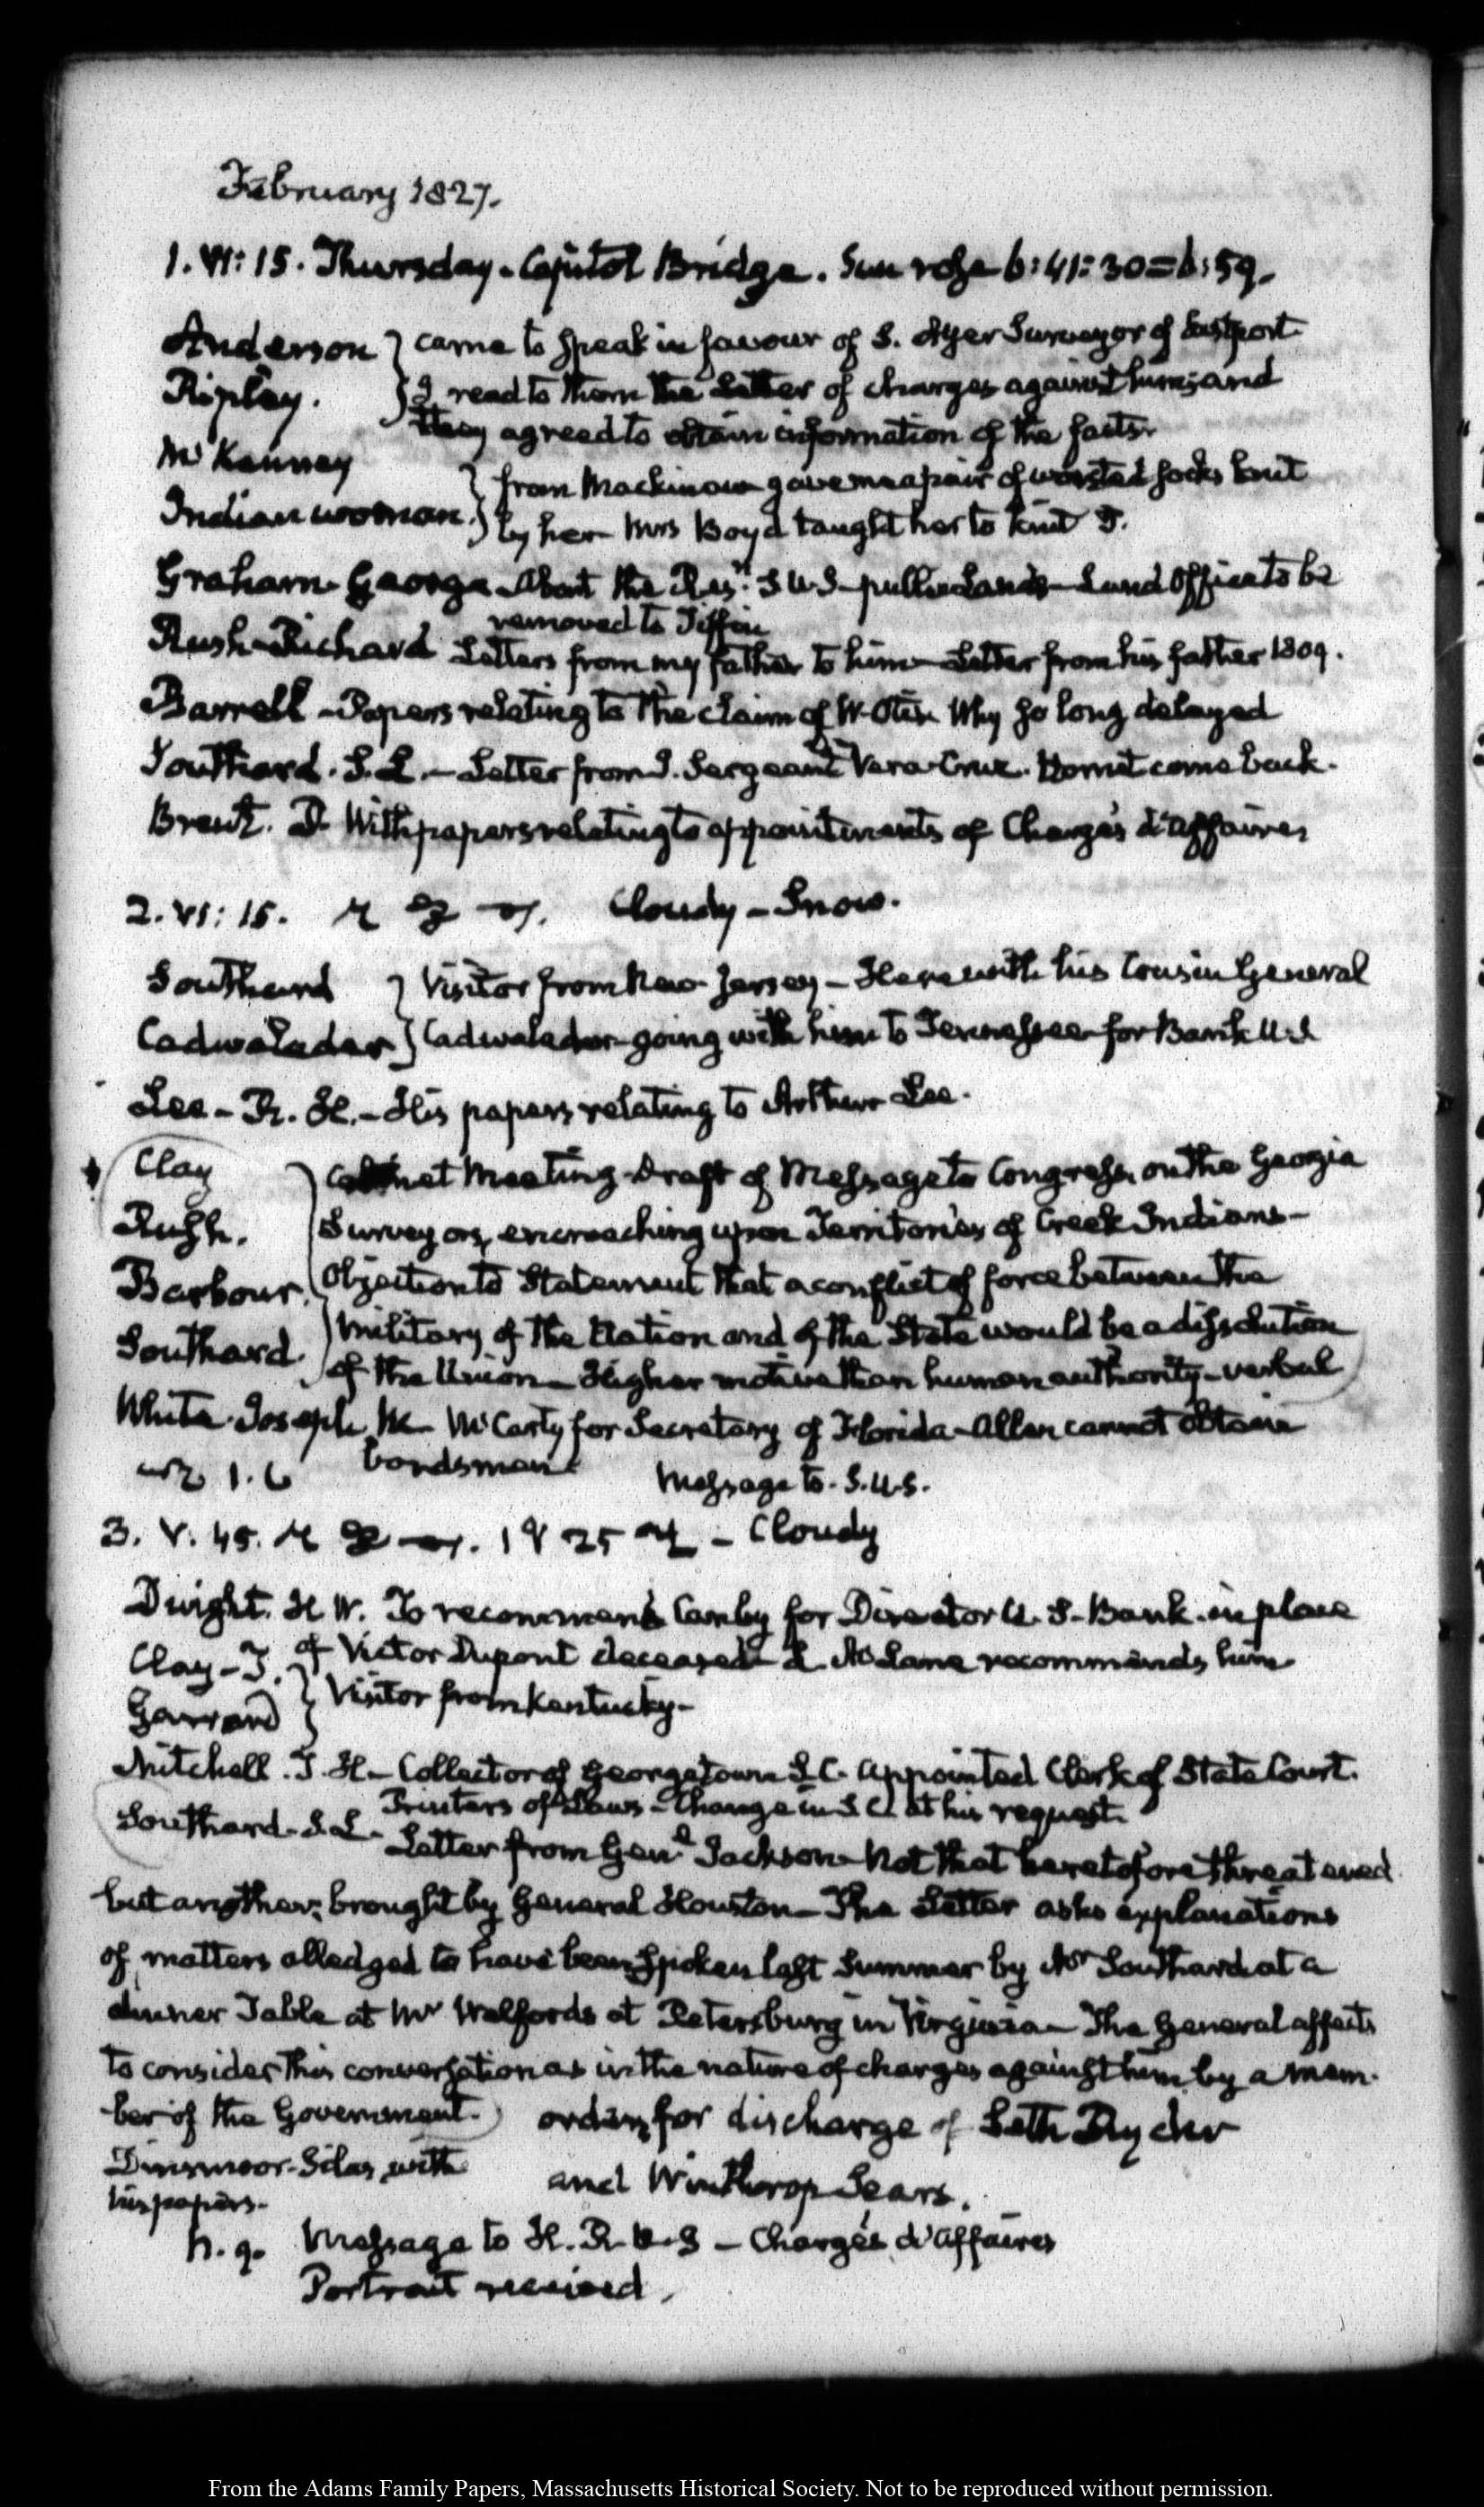 February 1827.
1. VI: 15. Thursday. Capitol Bridge. Sun rose 6:41:30=6:59.
Anderson } came to speak in favour of S. Ayer Surveyor of Eastport
Ripley. } I read to them the Letter of charges against him; and
they agreed to obtain information of the facts.
McKenney
Indian woman. } from Mackinaw gave me a pair of worsted socks knit
by her Mrs Boyd taught her to knit
Graham. George. About the Resn. S.U.S. public Lands Land Office to be
removed to Tiffin
Rush. Richard Letters from my father to him Letter from his father 1809.
Barrell - Papers relating to the claim of W. Otis. Why so long delayed
Southard. S. L. - Letter from J. Sergeant Vera Cruz. Hornet come back.
Brent. D. With papers relating to appointments of Chargés d'affaires
2. VI: 15. Cloudy - Snow.
Southard } Visitor from New Jersey - Here with his Cousin General
Cadwalader } Cadwalader going with him to Tennessee for Bank U.S.
Lee - R. H. - His papers relating to Arthur Lee.
Clay } Cabinet Meeting. Draft of Message to Congress, on the Georgia
Rush. Surveyors, encroaching upon Territories of Creek Indians -
Barbour. Objection to Statement that a conflict of force between the
Southard. military of the Nation and of the State would be a dissolution
of the Union - Higher motive than human authority - verbal
White. Joseph M. McCarty for Secretary of Florida - Allen cannot obtain
bondsmen. Message to. S.U.S.
3. V. 45. - Cloudy
Dwight. H W. To recommend Canby for Director U. S. Bank. in place
of Victor Dupont deceased - L. McLane recommends him
Clay - J.
Garrard } Visitor from Kentucky -
Mitchell. T. H. - Collector of Georgetown S. C. appointed Clerk of State Court.
Printers of Laws - Change in S. C. at his request.
Southard. S. L. Letter from Genl. Jackson - Not that heretofore threatened
but another; brought by General Houston - The Letter asks explanations
of matters alledged to have been spoken last Summer by Mr Southard at a
dinner Table at Mr Welfords at Petersburg in Virginia - The General affects
to consider this conversation as in the nature of charges against him by a mem-
ber of the Government. orders for discharge of Seth Ryder
Dinsmoor. Silas, with and Winthrop Sears.
his papers.
n. 9. Message to H. R. U. S - Chargés d'affaires
Portrait received.
From the Adams Family Papers, Massachusetts Historical Society. Not to be reproduced without permission.